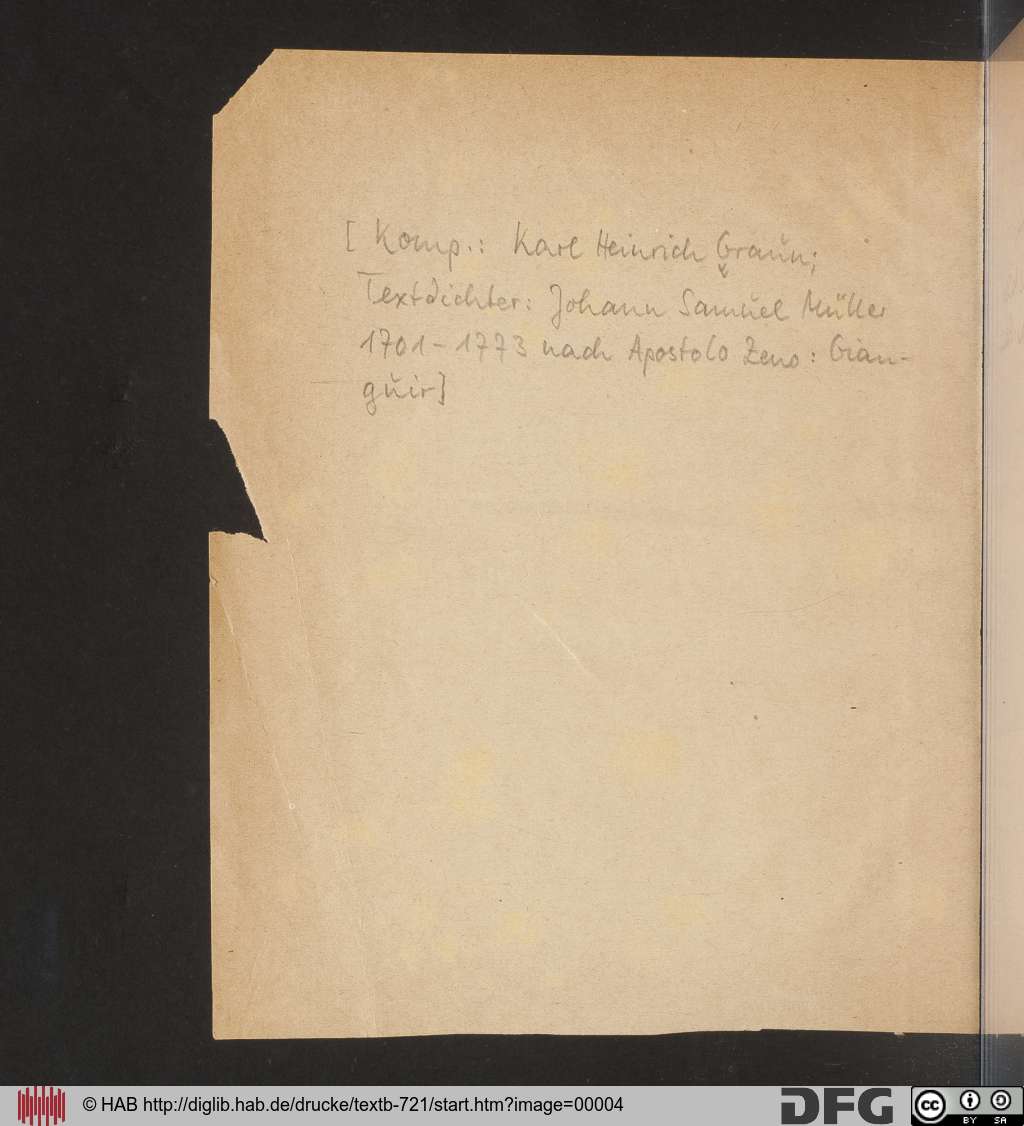 [ Komp.: Karl Heinrich Graun;
Textdichter: Johann Samuel Müller
1701-1773 nach Apostolo Zeno: Gian-
guir]
© HAB http://diglib.hab.de/drucke/textb-721/start.htm?image=00004
DFG
cc BY SA